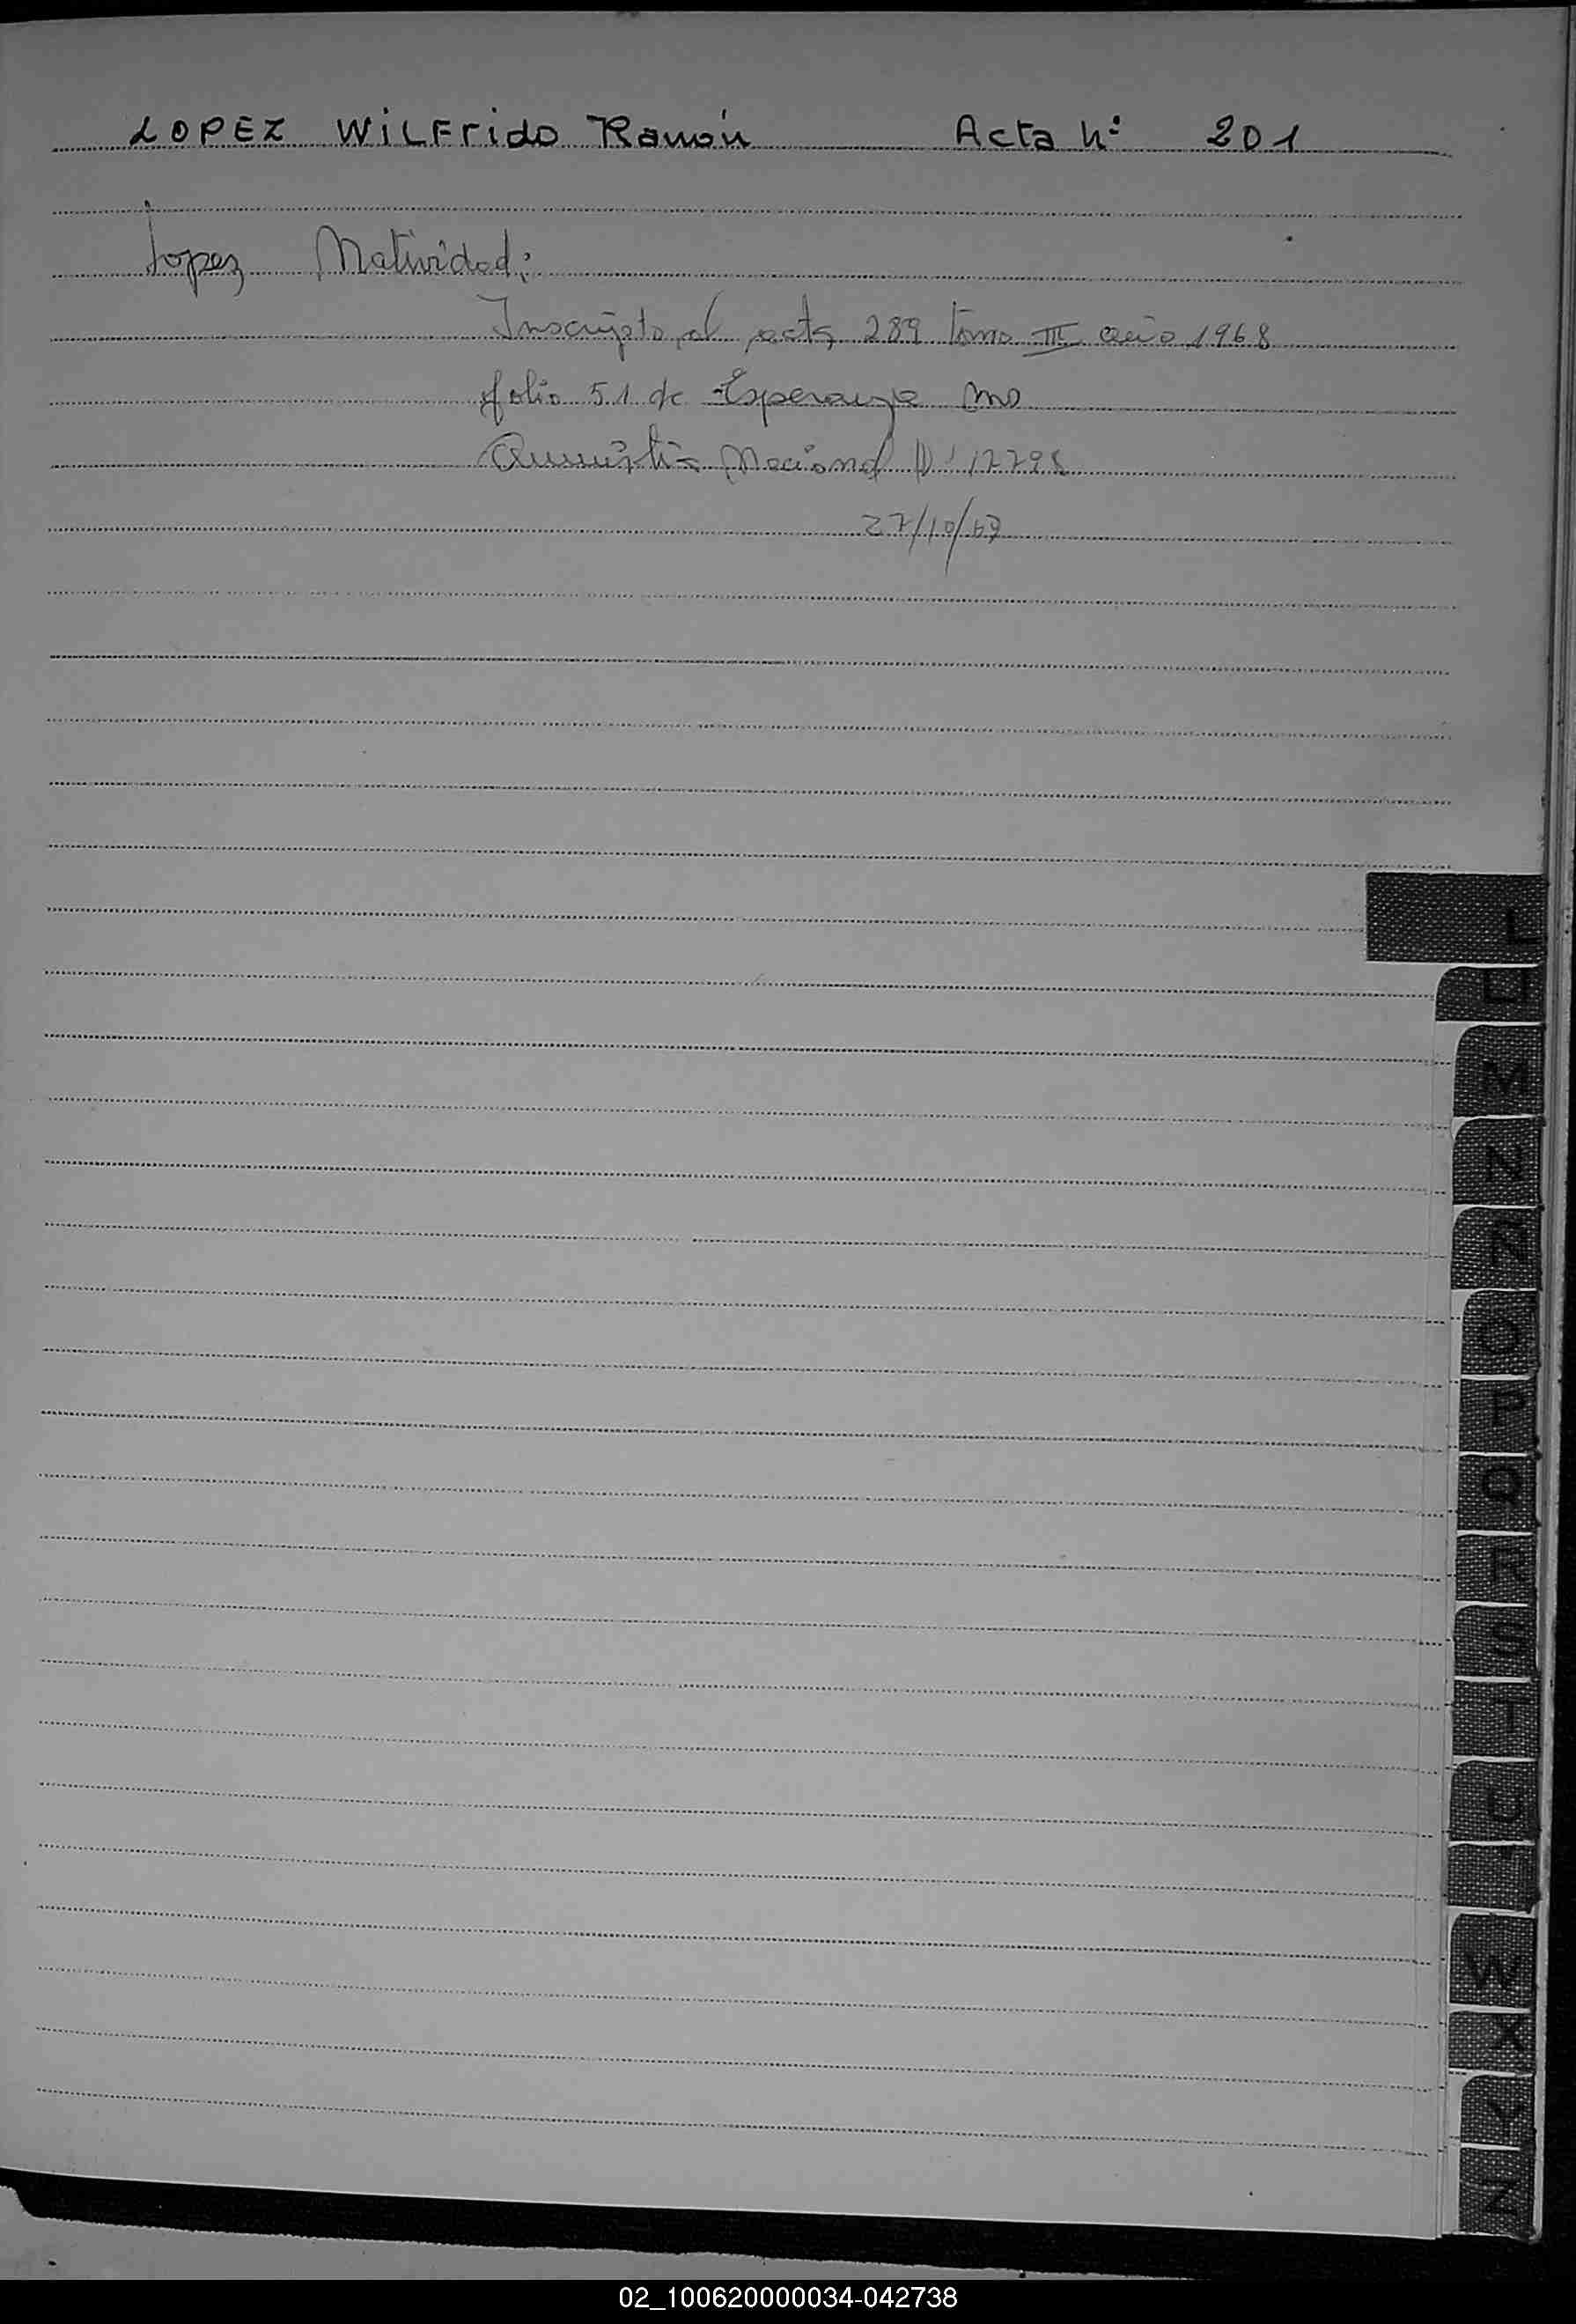 LOPEZ WiLFrido Ramón Acta Nº 201
Lopez Natividad:
Inscripto al acta 289 tomo III año 1968
folio 51 de Esperanza Mns
Amnistia Nacional D' 17798
27/10/69
L
LL
M
N
Ñ
O
P
Q
R
S
T
U
W
X
Y
Z
02_100620000034-042738